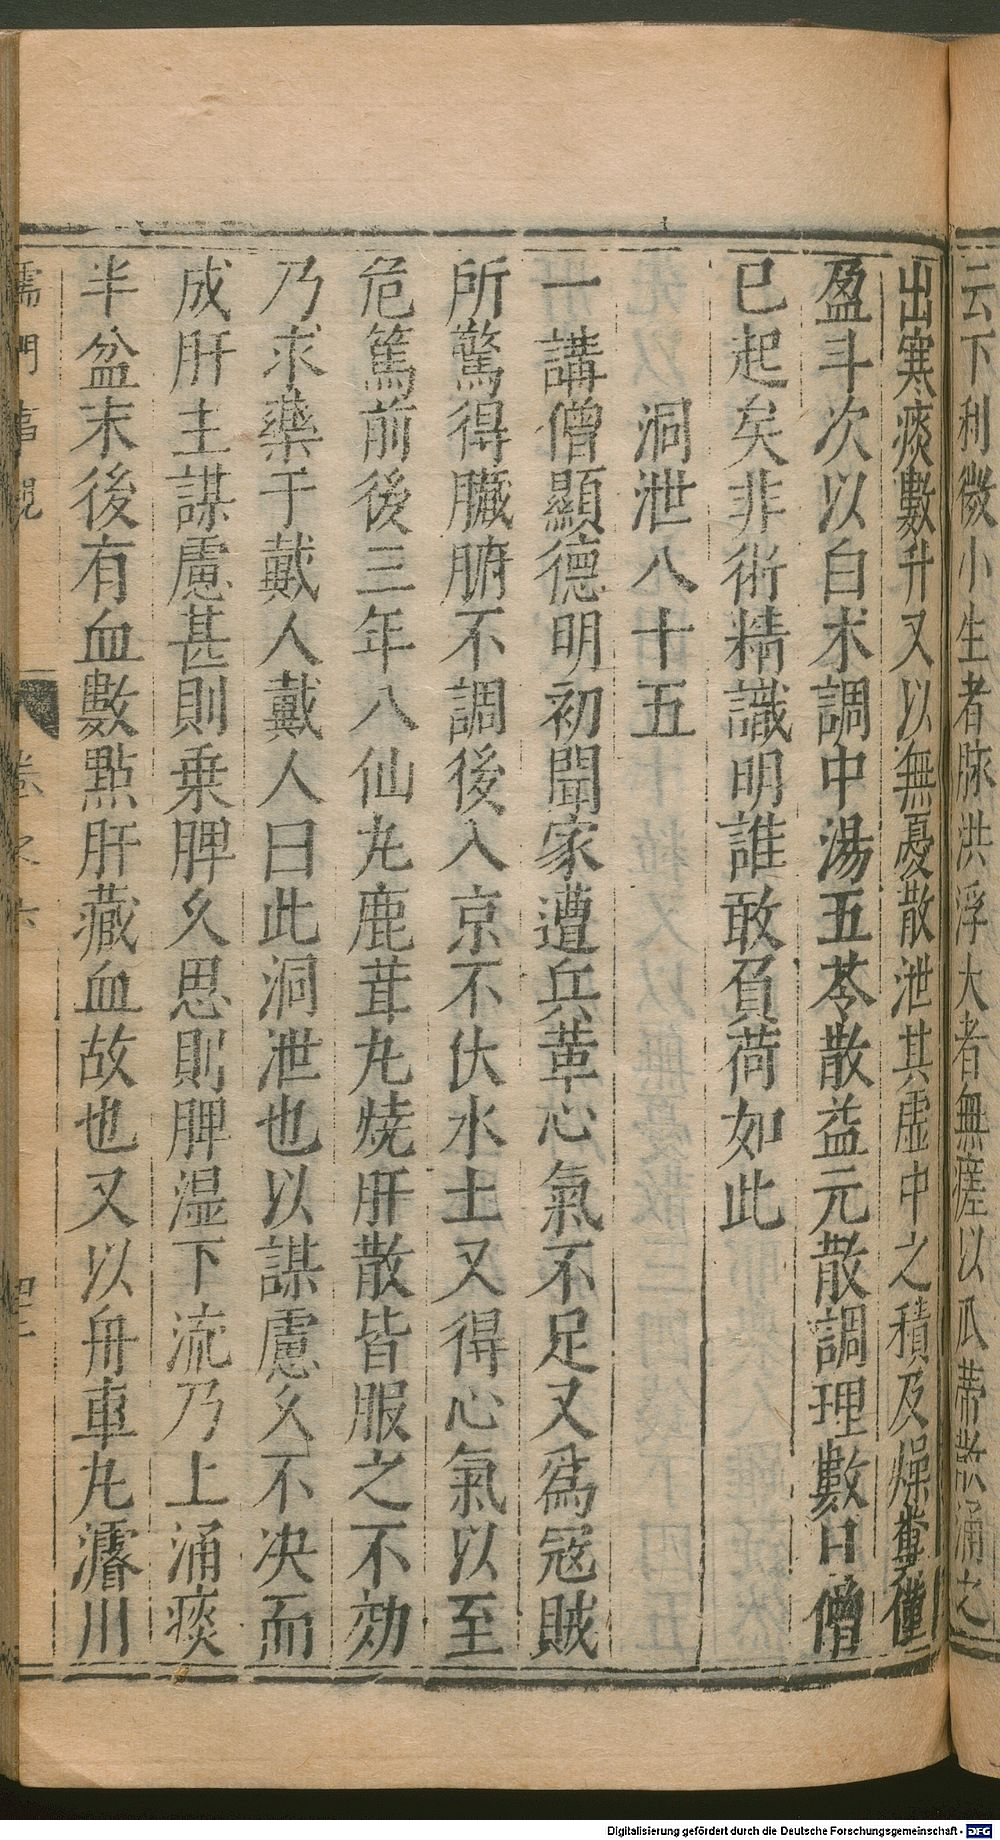 云下利微小生者脉洪浮大者無瘥以瓜蒂散涌之
出寒痰數升又以無憂散泄其虛中之積及燥糞僅
盈斗次以白术調中湯五苓散益元散調理數日僧
已起矣非術精識明誰敢負荷如此
洞泄八十五
一講僧顯德明初聞家遭兵革心氣不足又爲寇賊
所驚得臟腑不調後入京不伏水土又得心氣以至
危篤前後三年八仙丸鹿茸丸燒肝散皆服之不効
乃求藥于戴人戴人曰此洞泄也以謀慮久不决而
成肝主謀慮甚則乗脾久思則脾湿下流乃上涌痰
半盆末後有血數點肝藏血故也又以舟車丸濬川
儒門事親 卷之六
Digitalisierung gefördert durch die Deutsche Forschungsgemeinschaft - DFG